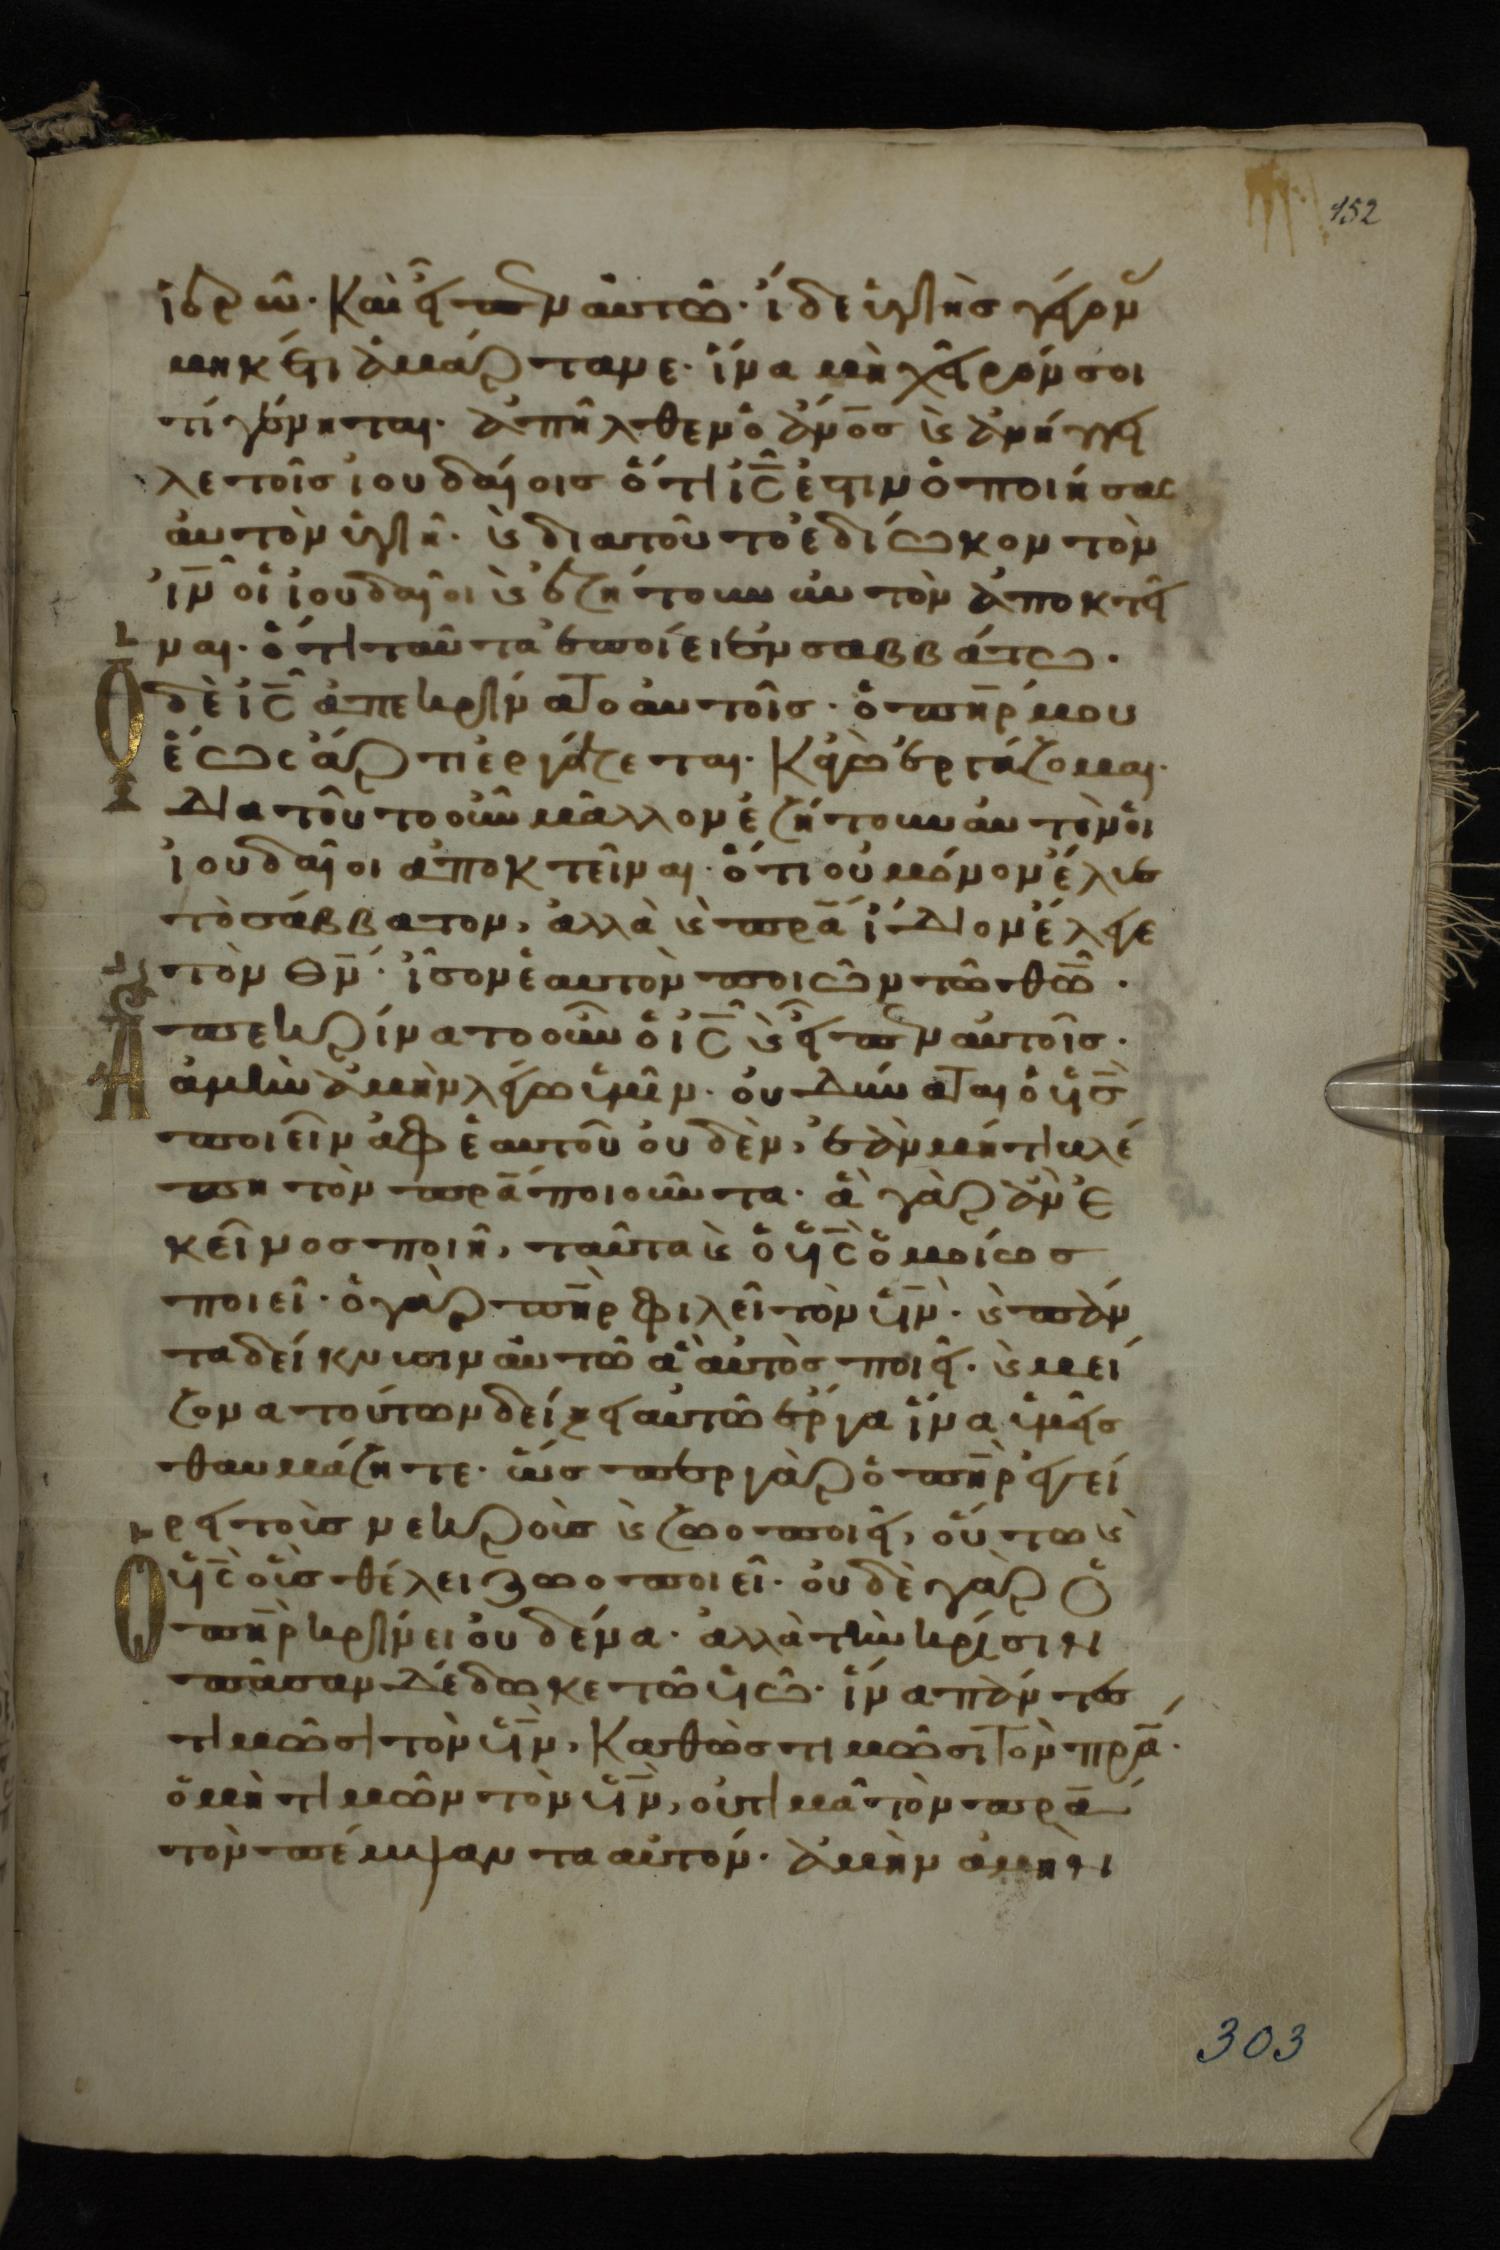 152
ἱερῶ· Καὶ εἶπεν αὐτῶ· ἴδε ὑγιὴς γέγονας
μηκέτι ἁμάρτανε· ἵνα μὴ χεῖρόν σοι
τί γένηται· ἀπῆλθεν ὁ ἄνο̅σ κ̀ ἀνήγγει
λε τοῖσ ἰουδαίοισ ὅτι ἰ̅ς̅ ἐστιν ὁ ποιήσας
αὐτὸν ὑγιῆ· κ̀ διατοῦτο ἐδίωκον τὸν
ἰ̅ν̅ οἱ ἰουδαῖοι κ̀ ἐζήτουν αὐτὸν ἀποκτεῖ
ναι· ὅτι ταῦτα ἐποίει ἐν σαββάτω·
Ο δὲ ἰ̅ς̅ ἀπεκρίνατο αὐτοῖσ· ὁ π̅η̅ρ μου
ἕως ἄρτι ἐργάζεται· Κἀγὼ ἐργάζομαι·
Διατοῦτο οὖν μᾶλλον ἐζήτουν αὐτὸν οἱ
ἰουδαῖοι ἀποκτεῖναι· ὅτι οὐ μόνον ἔλυε
τὸ σάββατον, ἀλλὰ κ̀ π̅ρ̅α̅ ἴδιον ἔλεγε
τὸν θ̅ν̅· ἴσον ἑαυτὸν ποιῶν τῶ θ̅ω̅·
Α
πεκρίνατο οὖν ὁ ἰ̅ς̅ κ̀ εἶπεν αὐτοῖσ·
ἀμὴν ἀμὴν λέγω ὑμῖν· οὐ δύναται ὁ υ̅ς̅
ποιεῖν ἀφ ἑαυτοῦ οὐδὲν, ἐὰν μή τι βλέ
πη τὸν π̅ρ̅α̅ ποιοῦντα· ἃ γὰρ ἂν ἐ
κεῖνοσ ποιῆ, ταῦτα κ̀ ὁ υ̅ς̅ ὁμοίωσ
ποιεῖ· ὁ γὰρ π̅η̅ρ φιλεῖ τὸν υ̅ν̅· κ̀ πάν
τα δείκνυσιν αὐτῶ ἃ αὐτὸσ ποιεῖ· κ̀ μεί
ζονα τούτων δείξει αὐτῶ ἔργα ἵνα ὑμεῖσ
θαυμάζητε· ὥσπερ γὰρ ὁ π̅η̅ρ ἐγεί
ρει τοὺσ νεκροὺσ κ̀ ζωοποιεῖ, οὕτω κ̀
Ο υ̅ς̅ οὓσ θέλει ζωοποιεῖ· οὐδὲ γὰρ ὁ
π̅η̅ρ κρίνει οὐδένα· ἀλλὰ τὴν κρίσιν
πᾶσαν δέδωκε τῶ υ̅ω̅· ἵνα πάντες
τιμῶσι τὸν υ̅ν̅, Καθὼσ τιμῶσι τὸν π̅ρ̅α̅·
ὁ μὴ τιμῶν τὸν υ̅ν̅, οὐ τιμᾶ τὸν π̅ρ̅α̅
τὸν πέμψαντα αὐτόν· ἀμὴν ἀμὴν
303